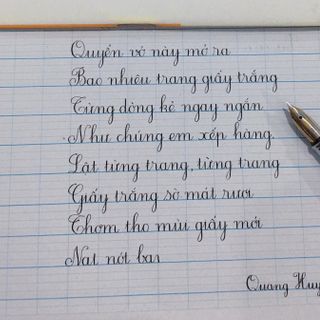 Quyển vở này mở ra
Bao nhiêu trang giấy trắng
Từng dòng kẻ ngay ngắn
Như chúng em xếp hàng.
Lật từng trang, từng trang
Giấy trắng sờ mát rượi
Thơm tho mùi giấy mới
Nắn nót bàn
Quang Huy